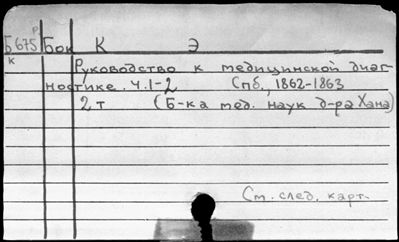 Б675 р Бок К Э
к
Руководство к медицинской диаг-
ностике. ч.1-2 Спб., 1862-1863
2 т (Б-ка мед. наук д-ра Хана)
См. след. карт.